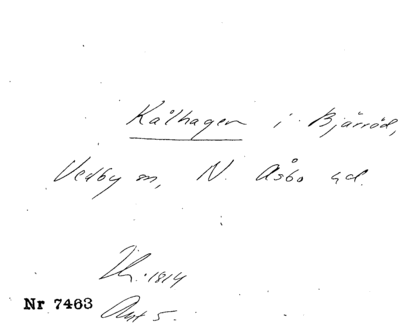 Kålhagen i Bjärröd,
Vedby sn, N. Åsbo hd.
Th. 1814
Nr 7463
Ant 5.